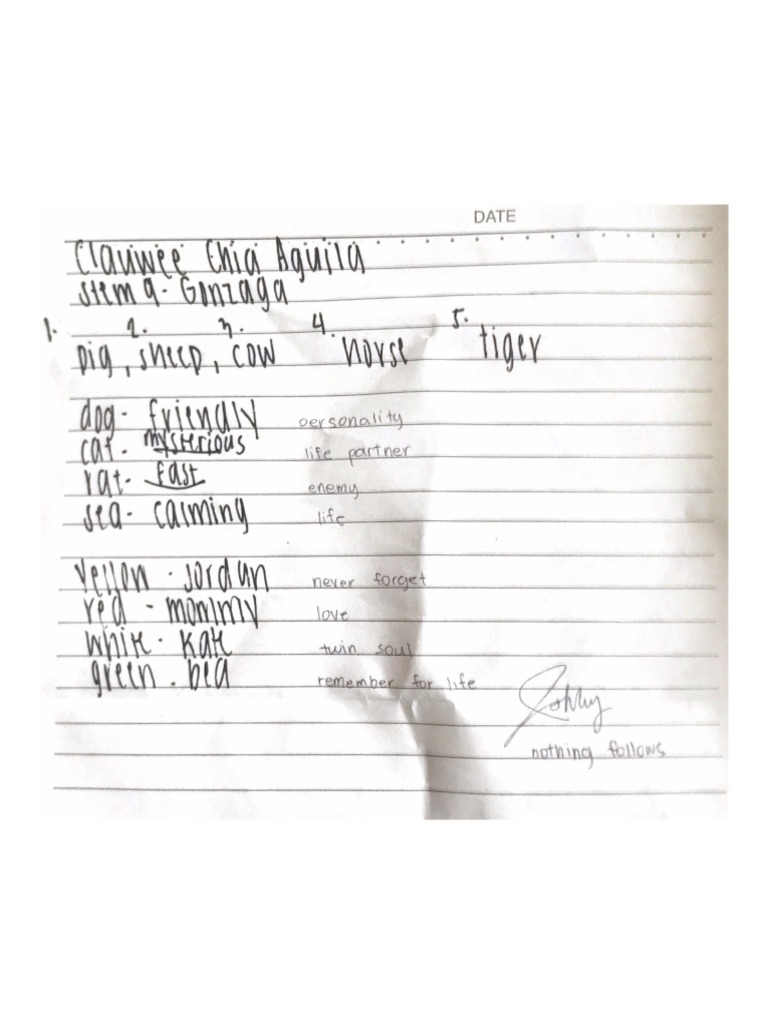 DATE
Clauwee Chia Aguila
Stem 9 - Gonzaga
1. 2. 3. 4. 5.
pig, sheep, cow horse tiger
dog - friendly personality
cat - mysterious life partner
rat - fast enemy
sea - calming life
yellow - jordan never forget
red - mommy love
white - kate twin soul
green - bea remember for life
nothing follows